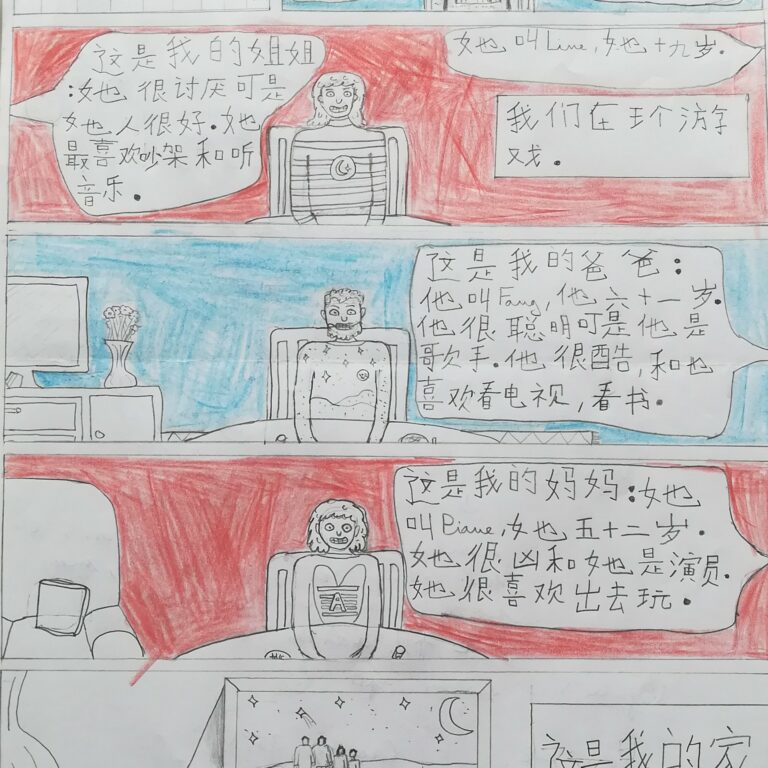 这是我的姐姐
:她很讨厌可是
她人很好.她
最喜欢吵架和听
音乐.
她叫Line,她十九岁.
我们在个游
戏.
这是我的爸爸:
他叫Fang,他六十一岁.
他很聪明可是他是
歌手.他很酷,和也
喜欢看电视,看书.
这是我的妈妈:她
叫Diane,她五十二岁.
她很凶和她是演员.
她很喜欢出去玩.
A
这是我的家